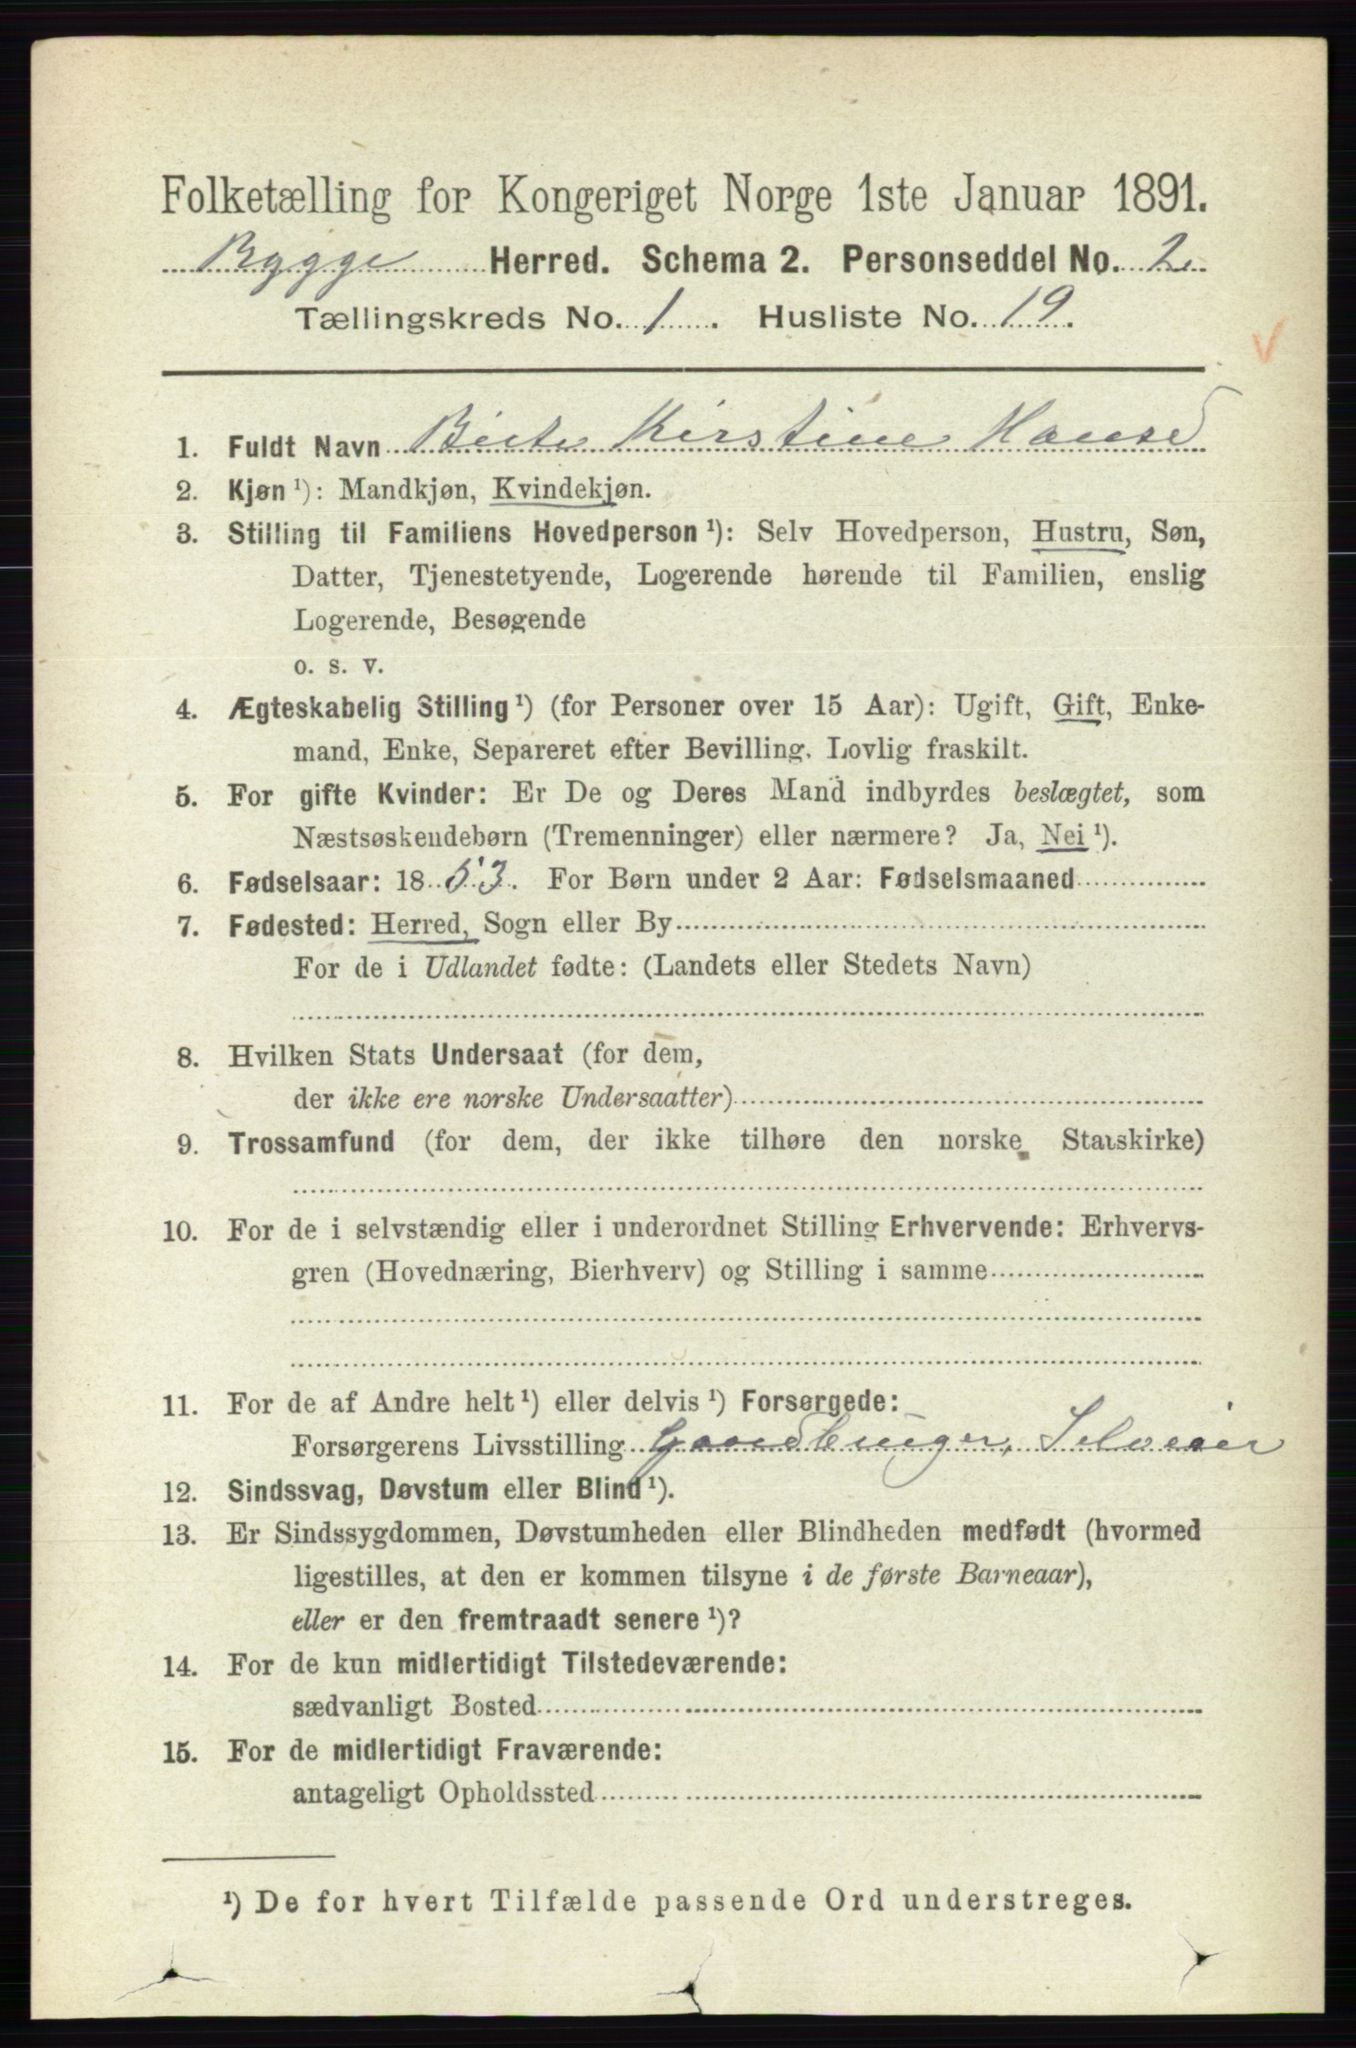 Folketælling for Kongeriget Norge 1ste Januar 1891.
Rygge Herred. Schema 2. Personseddel No. 2
Tællingskreds No. 1. Husliste No. 19.
1. Fuldt Navn Birte Kirstine Hansd
2. Kjøn ¹): Mandkjøn, Kvindekjøn.
3. Stilling til Familiens Hovedperson ¹): Selv Hovedperson, Hustru, Søn,
Datter, Tjenestetyende, Logerende hørende til Familien, enslig
Logerende, Besøgende
o. s. v.
4. Ægteskabelig Stilling ¹) (for Personer over 15 Aar): Ugift, Gift, Enke-
mand, Enke, Separeret efter Bevilling. Lovlig fraskilt.
5. For gifte Kvinder: Er De og Deres Mand indbyrdes beslægtet, som
Næstsøskendebørn (Tremenninger) eller nærmere? Ja, Nei ¹).
6. Fødselsaar: 1853. For Børn under 2 Aar: Fødselsmaaned
7. Fødested: Herred, Sogn eller By
For de i Udlandet fødte: (Landets eller Stedets Navn)
8. Hvilken Stats Undersaat (for dem,
der ikke ere norske Undersaatter)
9. Trossamfund (for dem, der ikke tilhøre den norske Statskirke)
10. For de i selvstændig eller i underordnet Stilling Erhvervende: Erhvervs-
gren (Hovednæring, Bierhverv) og Stilling i samme
11. For de af Andre helt ¹) eller delvis ¹) Forsørgede:
Forsørgerens Livsstilling Gaardbruger, Selveier
12. Sindssvag, Døvstum eller Blind ¹).
13. Er Sindssygdommen, Døvstumheden eller Blindheden medfødt (hvormed
ligestilles, at den er kommen tilsyne i de første Barneaar),
eller er den fremtraadt senere ¹)?
14. For de kun midlertidigt Tilstedeværende:
sædvanligt Bosted
15. For de midlertidigt Fraværende:
antageligt Opholdssted
¹) De for hvert Tilfælde passende Ord understreges.